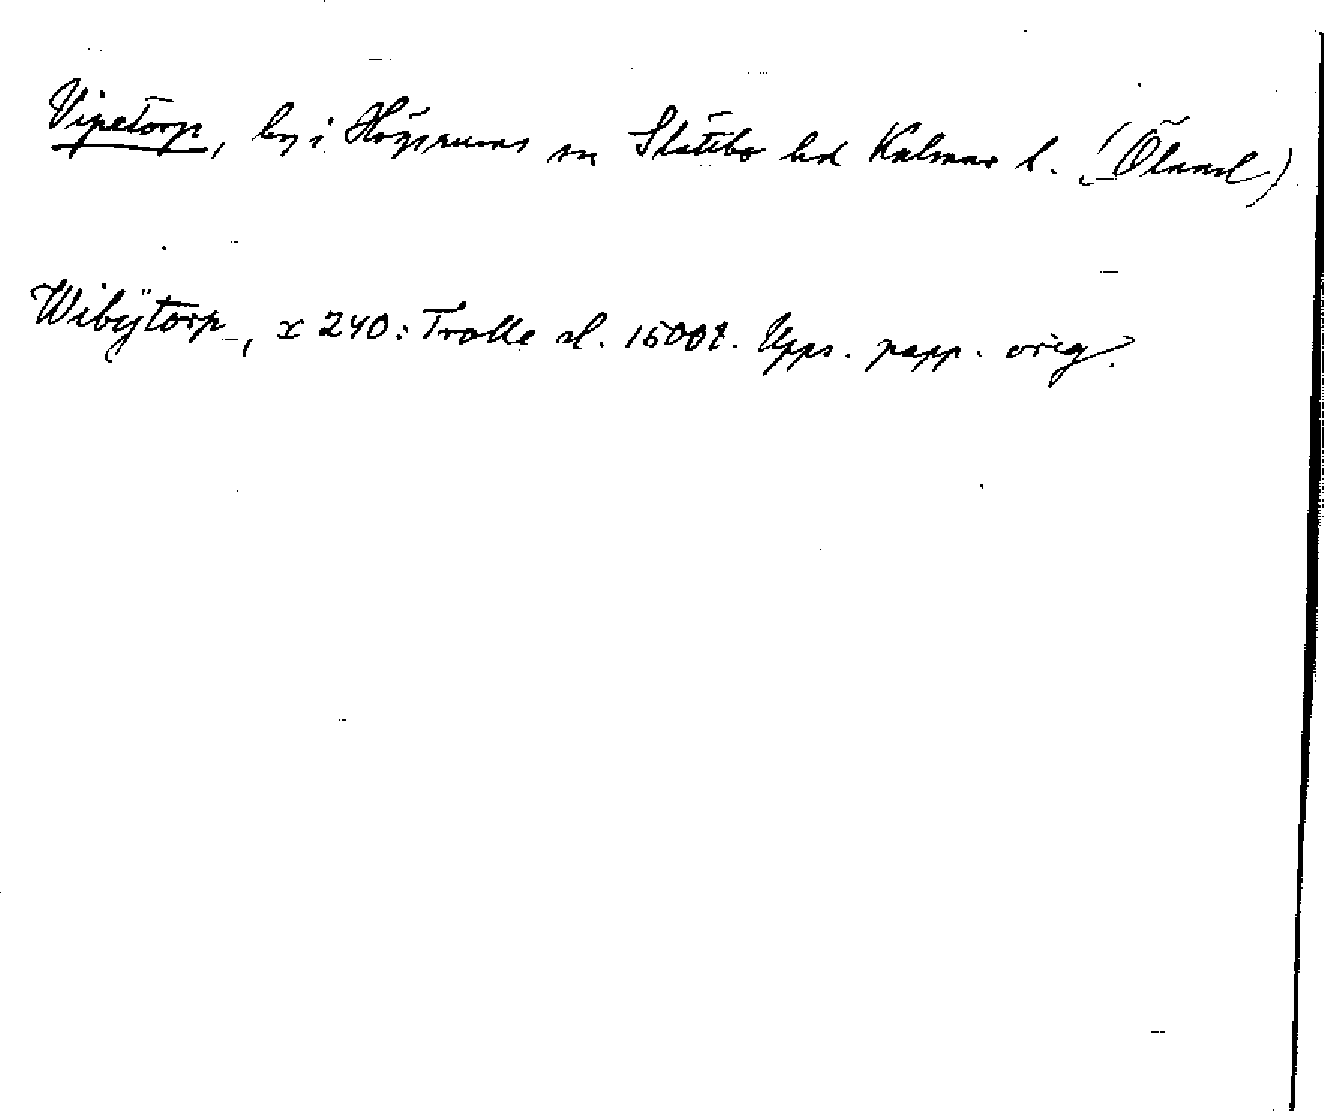 Vipetorp, by i Högsrums sn Slättbo hd Kalmar l. (Öland)
Wibÿtorp, x 240: Trolle sl. 1500t. Upps. papp. orig.